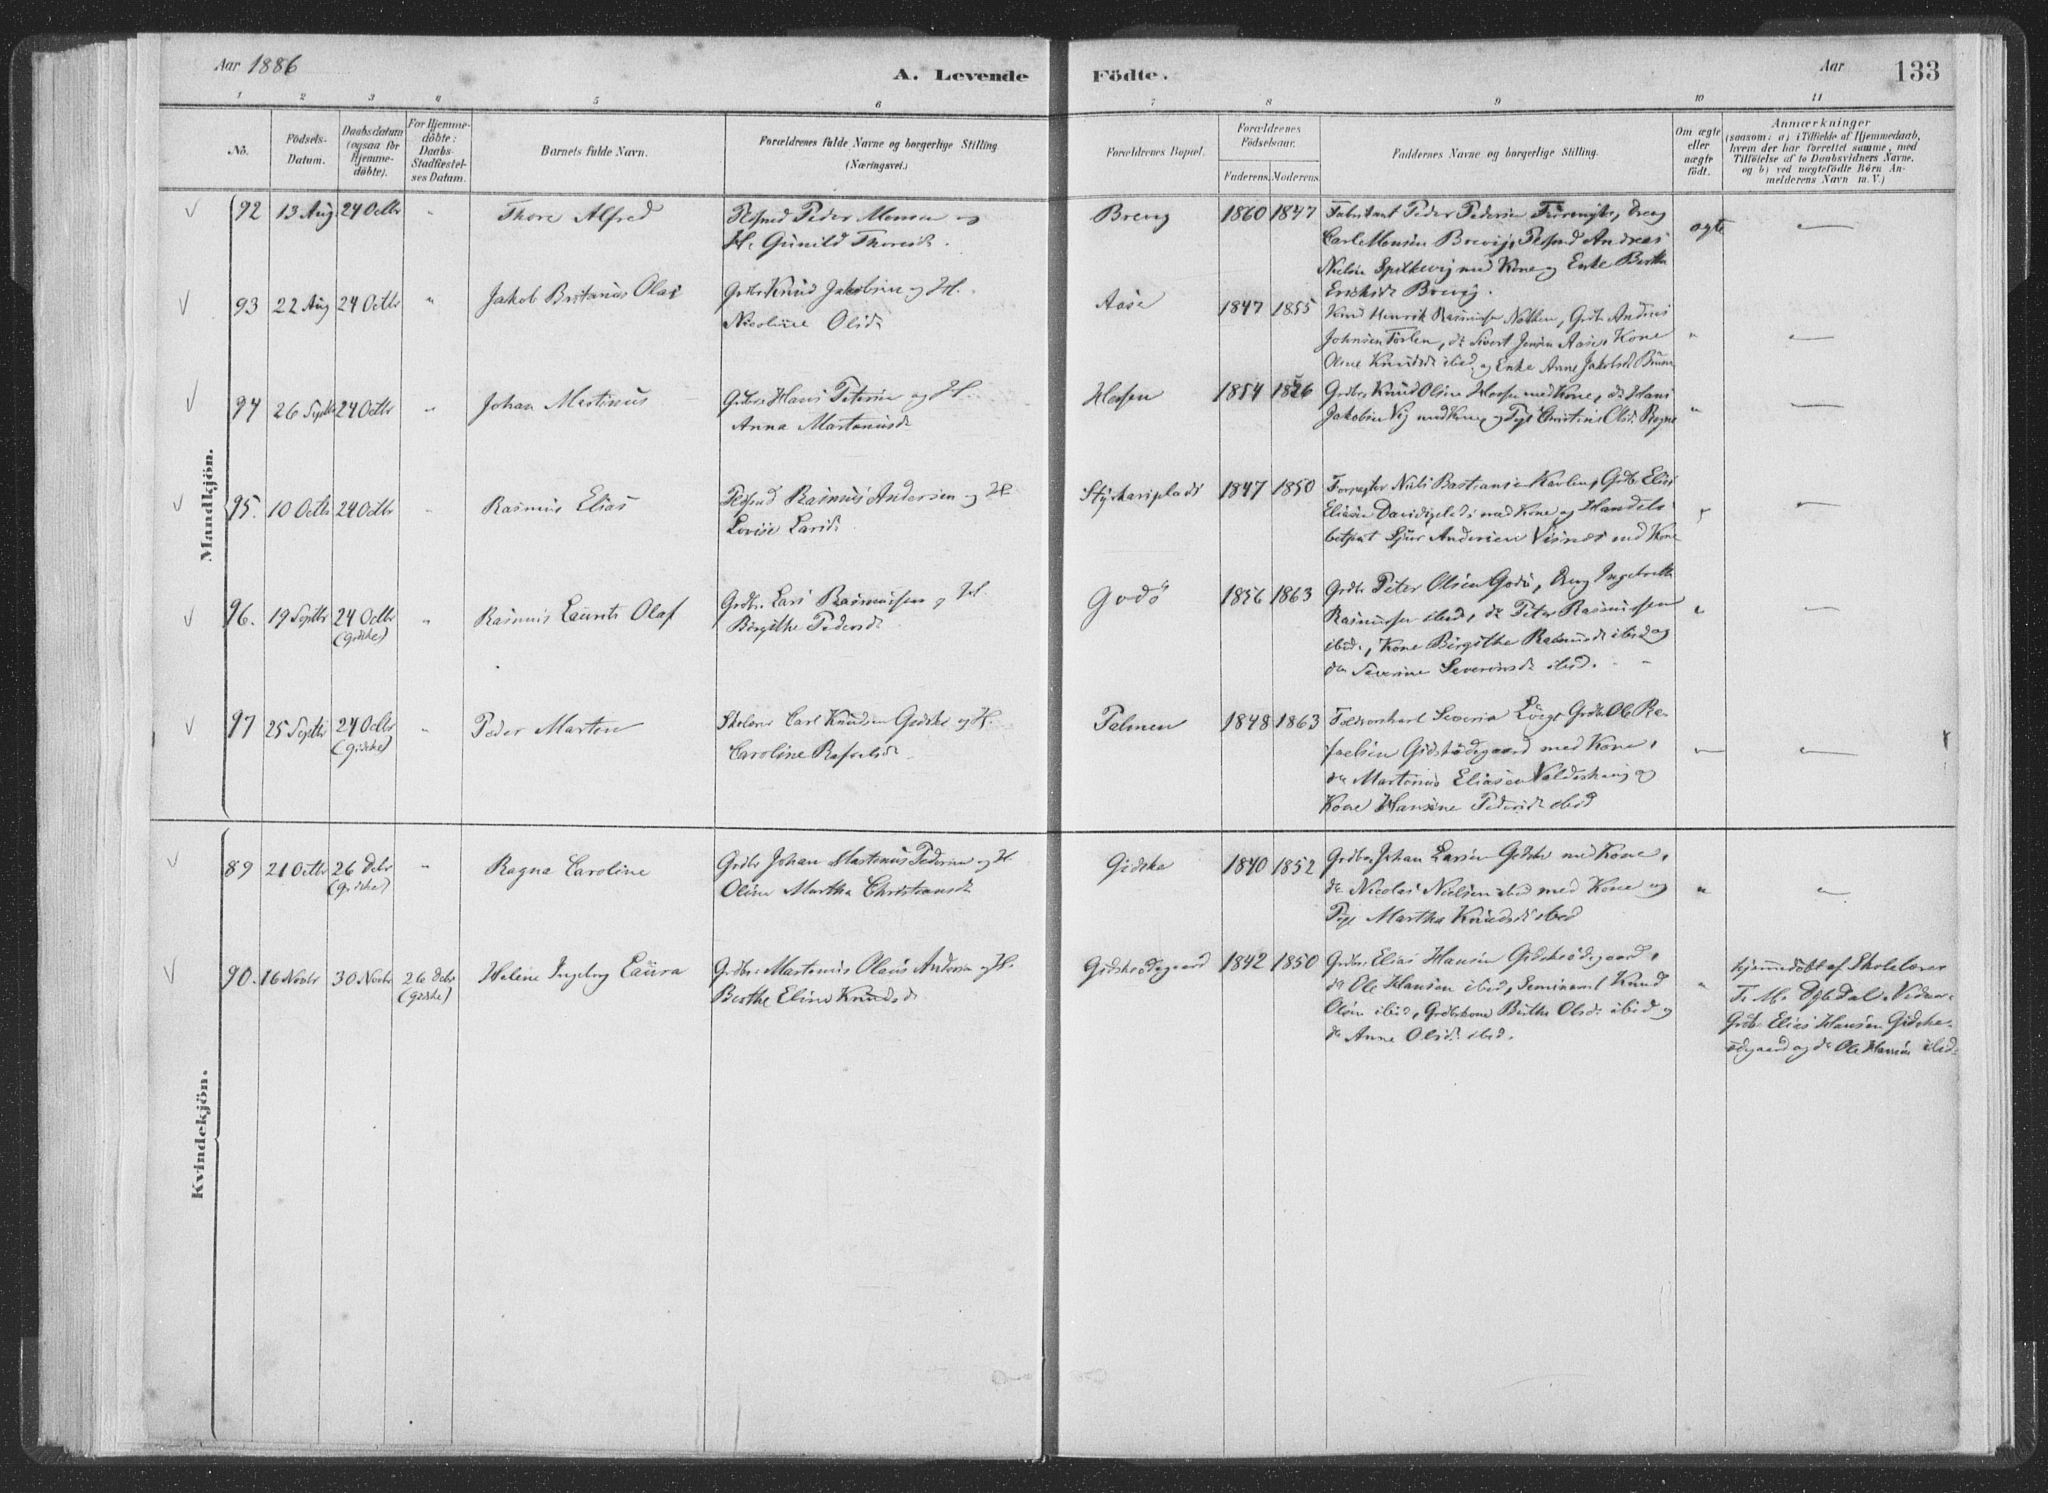 Aar 1886
A. Levende Födte.
Aar
133
1 2 3 4 5 6 7 8 9 10 11
No.
Födsels-Datum.
Daabsdatum (ogsaa for Hjemme-döbte).
For Hjemme-döbte: Daabs-Stadfæstel-ses Datum.
Barnets fulde Navn.
Forældrenes fulde Navne og borgerlige Stilling (Næringsvei.)
Forældrenes Bopæl.
Forældrenes Födselsaar.
Faderens. Moderens.
Faddernes Navne og borgerlige Stilling.
Om ægte eller uægte födt.
Anmærkninger
(saasom: a) i Tilfælde af Hjemmedaab, hvem der har forrettet samme, med Tilföielse af to Daabsvidners Navne, og b) ved uægtefödte Börn Anmelderens Navn m. V.)
Mandkjön.
92 13 Aug 24 Octbr " Thore Alfred
Peder Monsen og
H. Gunild Thoresd.
1860 1847
Fabrikant Peder Pedersen
Carl Monsen Brevig, Andreas
Nielsen Spilkevig med Kone og Enke Berthe
Brevig.
ægte
93 22 Aug 24 Octbr " Jakob Olai
Grdbr Knud Jakobsen og H.
Nicoline Olsd.
Aase
1847 1855
Knud Henrik Rasmussen Grdbr Andreas
Johnsen do Sivert Jensen Aase, Kone
Oline Knudsd. ibid og Enke Anne Jakobsd.
94 26 Septbr 24 Octbr " Johan Martinus
Grdbr. Hans Petersen og H.
Anna Martinusd.
Hessen
1854 18
Grdbr Knud Olsen Hessen med Kone, do Hans
Jakobsen med Kone og Pige Christine Olsd.
95. 10 Octbr 24 Octbr " Rasmus Elias
Rasmus Andersen og H.
Lovise Larsd.
1847 1850
Niels Bastiansen Grdbr Elias
Eliasen med Kone og Handels-
betjent Sjur Andersen med Kone
96. 19 Septbr 24 Octbr (Giske) " Rasmus Laurits Olaf
Grdbr. Lars Rasmussen og H.
Birgithe Pedersd.
Godö
1856 1863
Grdbr Peter Olsen Godö, Dreng Ingebrette
Rasmussen ibid, do Peter Rasmussen
ibid., Kone Birgithe Rasmusd. ibid og
do Severine Severinsd. ibid.
97 25 Septbr 24 Octbr (Giske) " Peder Marten
Skolelærer Carl Knudsen Gidske og H.
Caroline Rafaelsd.
1848 1863
Grdbr Ole Ra-
faelsen Gidskeödegaard med Kone,
do Martinus Eliasen og
Kone Hansine Pedersd. ibid
Kvindekjön.
89 21 Octbr 26 Debr (Gidske) " Ragna Caroline
Grdbr Johan Martinus Pedersen og H.
Oline Martha Christiansd.
Gidske
1840 1852
Grdbr. Johan Larsen Gidske med Kone,
do Nicolai Nielsen ibid med Kone og
Pige Martha Knudsd. ibid
90. 16 Novbr 30 Novbr 26 Debr (Giske) Helene Ingeborg Laura
Grdbr. Martinus Olaus Andersen og H.
Berthe Eline Knudsd
Gidskeödegaard
1842 1850
Grdbr. Elias Hansen Gidskeödegaard,
do Ole Hansen ibid, Seminarist Knud
Olsen ibid, Grdbrkone Berthe Olsd. ibid og
do Anne Olsd. ibid.
Hjemmedöbt af Skolelærer
Vidner.
Grdbr. Elias Hansen Gidske-
ödegaard og do Ole Hansen ibid.